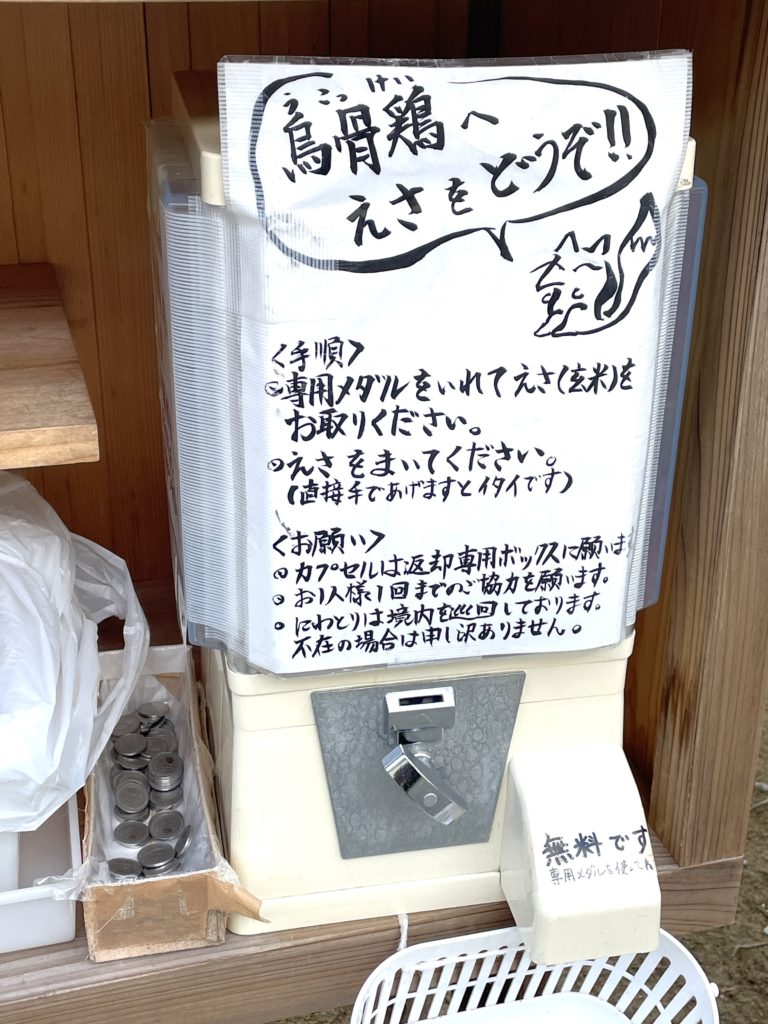 うこっけい
烏骨鶏へ
えさをどうぞ!!
<手順>
◎専用メダルをいれてえさ(玄米)を
お取りください。
◎えさをまいてください。
(直接手であげますとイタイです)
<お願い>
◎カプセルは返却専用ボックスに願います
◎お1人様1回までのご協力を願います。
◎にわとりは境内を巡回しております。
不在の場合は申し沢ありません。
無料です
専用メダルを使って